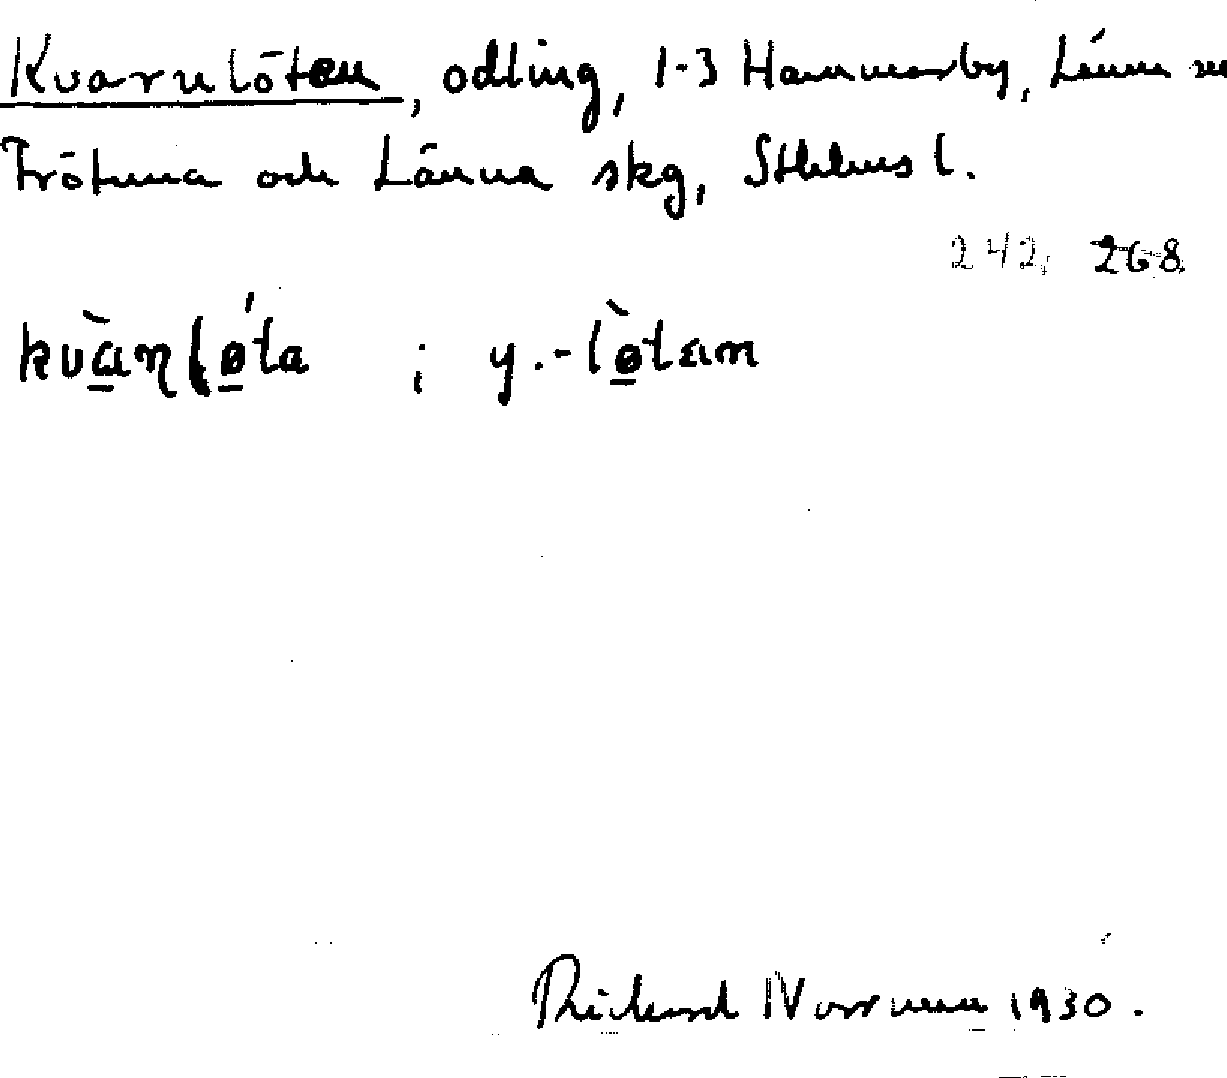 Kvarnlöten, odling, 1-3 Hammarby, Länna sn
Frötuna och Länna skg, Sthlms l.
242, 268
kvàṇlø̀ta ; y. -lø̀tan
Rickard Norrman 1930.